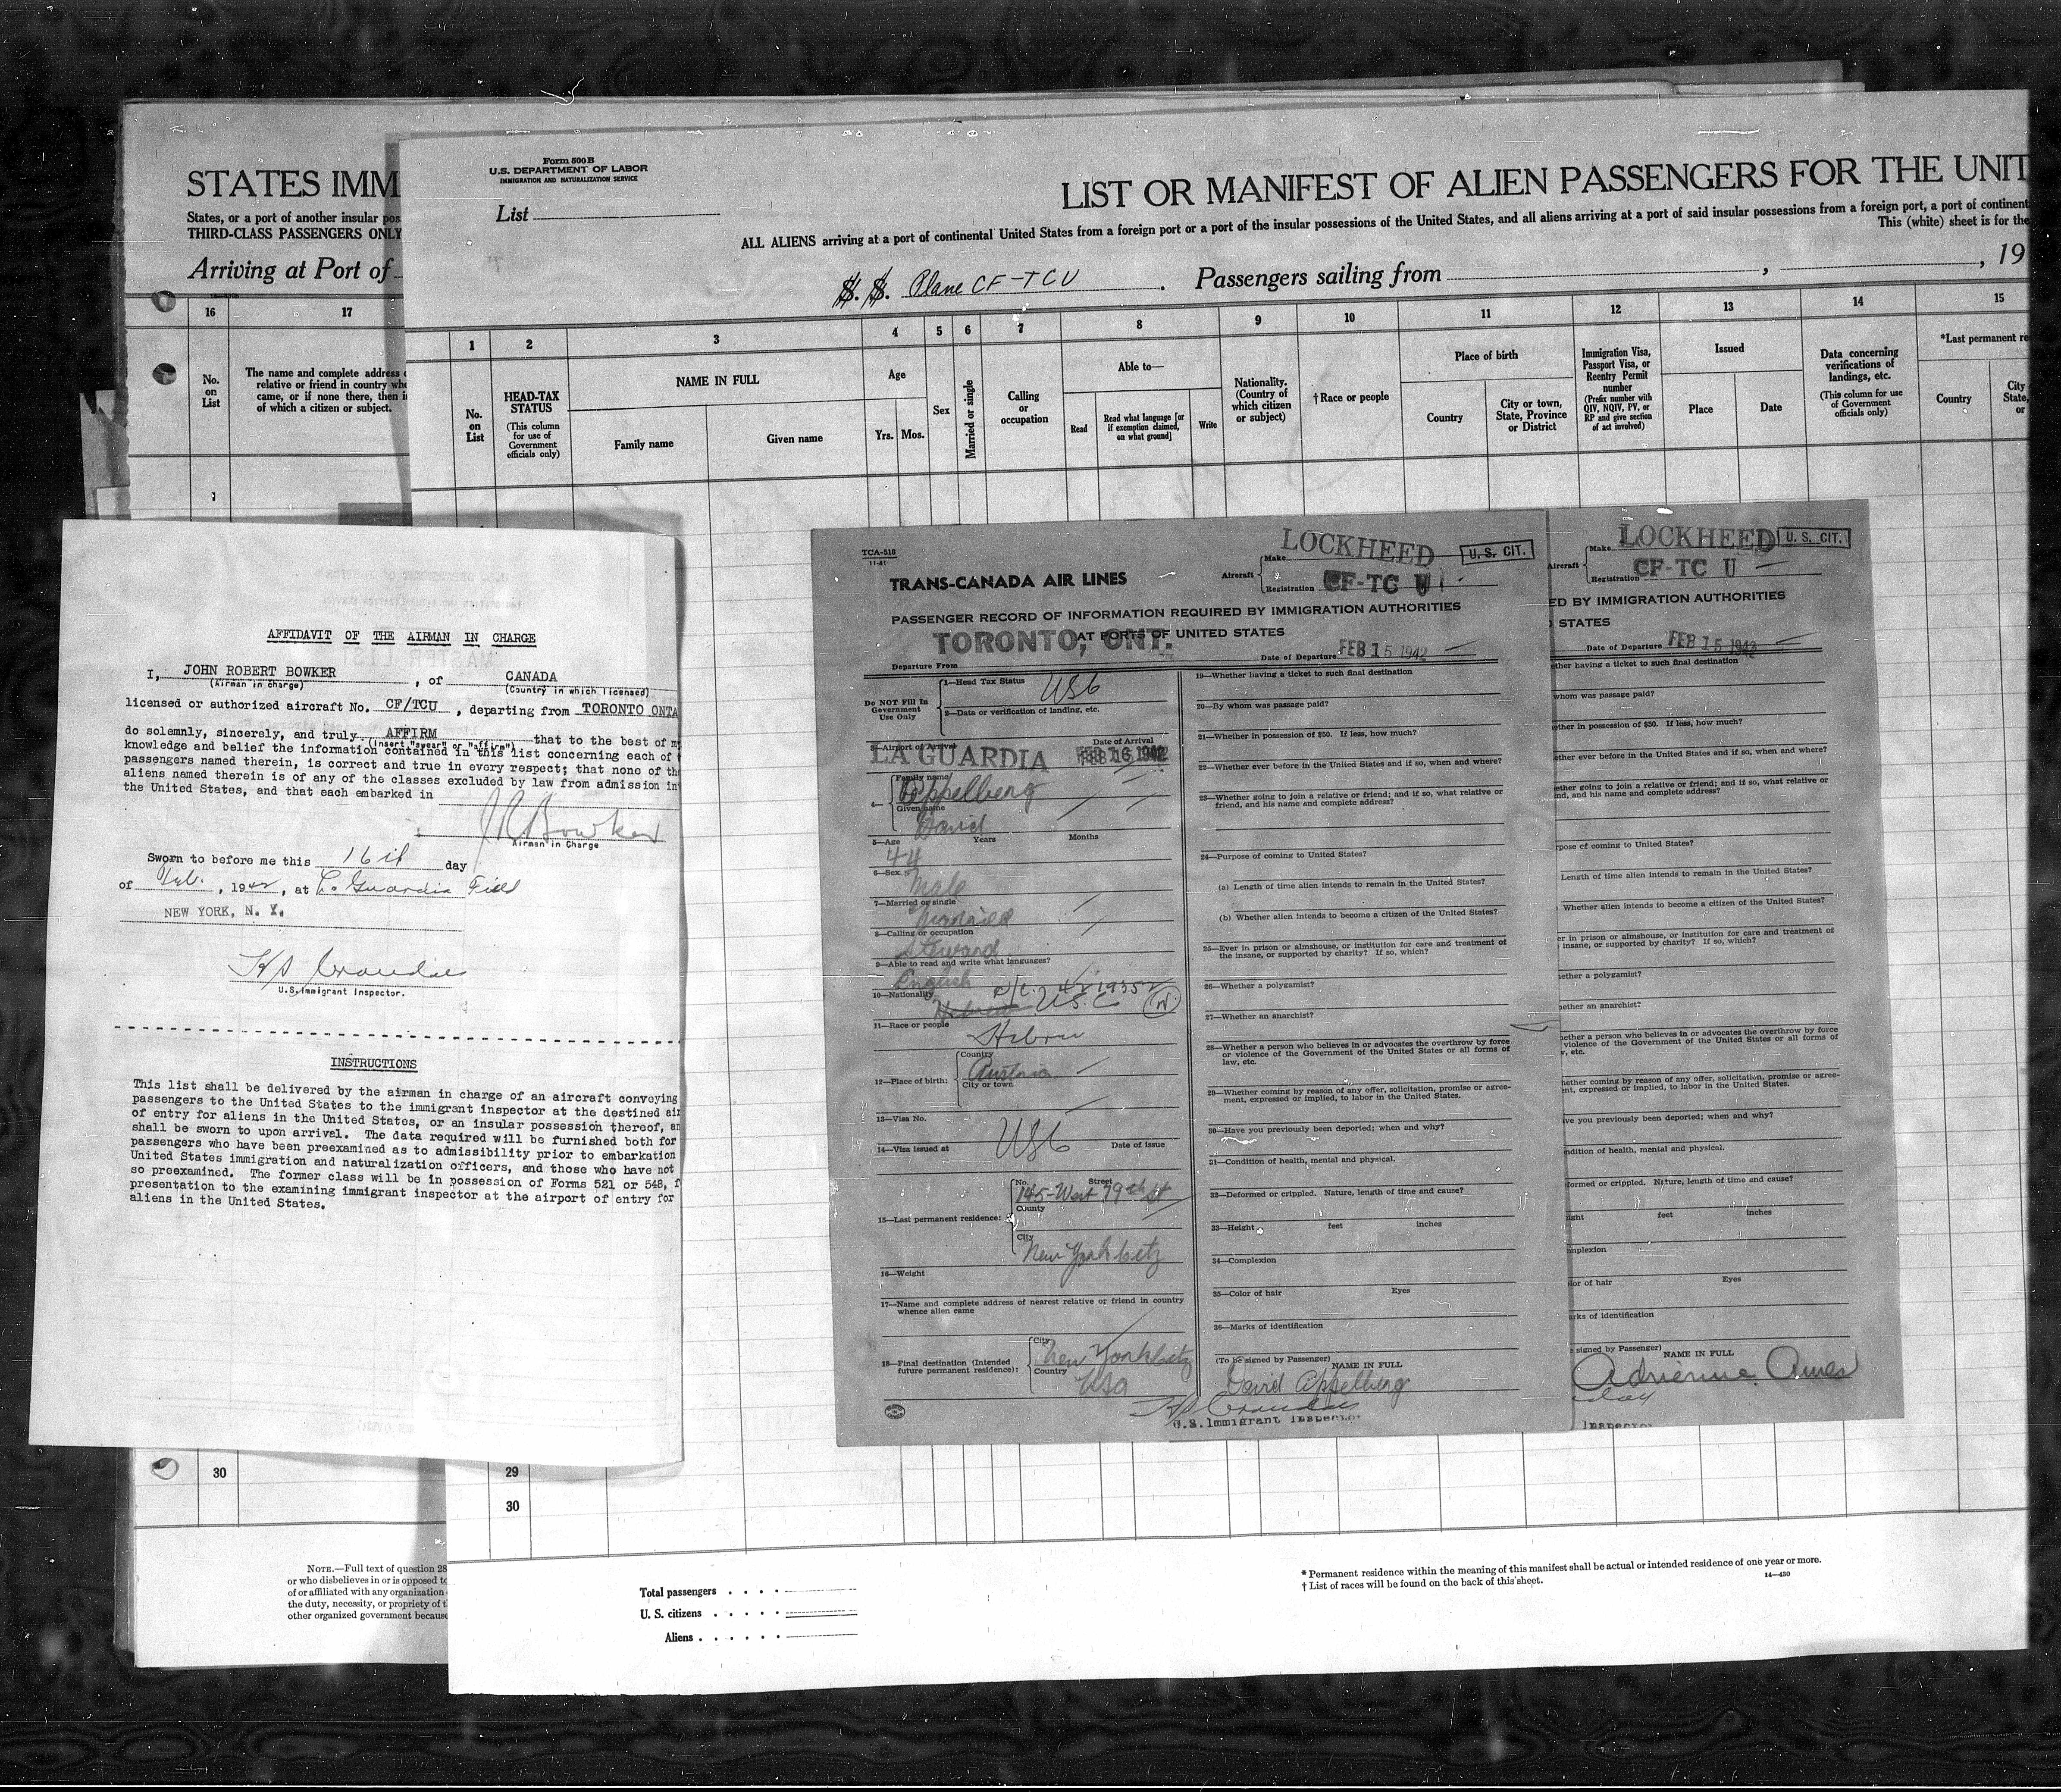 STATES IMM
States, or a port of another insular pos
THIRD-CLASS PASSENGERS ONLY
Arriving at Port of
16
17
No. on List
The name and complete address o
relative or friend in country whe
came, or if none there, then i
of which a citizen or subject.
30
NOTE.—Full text of question 28
or who disbelieves in or is opposed to
of or affiliated with any organization
the duty, necessity, or propriety of t
other organized government because
Form 500 B
U.S. DEPARTMENT OF LABOR
IMMIGRATION AND NATURALIZATION SERVICE
List
LIST OR MANIFEST OF ALIEN PASSENGERS FOR THE UNIT
ALL ALIENS arriving at a port of continental United States from a foreign port or a port of the insular possessions of the United States, and all aliens arriving at a port of said insular possessions from a foreign port, a port of continent
This (white) sheet is for the
S. S. Plane CF-TCU . Passengers sailing from , , 19
1 2 3 4 5 6 7 8 9 10 11 12 13 14 15
No. on List
HEAD-TAX STATUS
(This column for use of Government officials only)
NAME IN FULL
Family name
Given name
Age
Yrs. Mos.
Sex
Married or single
Calling or occupation
Able to—
Read
Read what language [or if exemption claimed, on what ground]
Write
Nationality. (Country of which citizen or subject)
†Race or people
Place of birth
Country
City or town, State, Province or District
Immigration Visa, Passport Visa, or Reentry Permit number
(Prefix number with QIV, NQIV, PV, or RP and give section of act involved)
Issued
Place
Date
Data concerning verifications of landings, etc.
(This column for use of Government officials only)
*Last permanent re
Country
City
State,
or
29
30
Total passengers
U. S. citizens
Aliens
* Permanent residence within the meaning of this manifest shall be actual or intended residence of one year or more.
† List of races will be found on the back of this sheet.
14—430
AFFIDAVIT OF THE AIRMAN IN CHARGE
I, JOHN ROBERT BOWKER , of CANADA
(Airman in Charge) (Country in which licensed)
licensed or authorized aircraft No. CF/TCU , departing from TORONTO ONTA
do solemnly, sincerely, and truly AFFIRM that to the best of m
(insert "swear" or "affirm")
knowledge and belief the information contained in this list concerning each of t
passengers named therein, is correct and true in every respect; that none of th
aliens named therein is of any of the classes excluded by law from admission in
the United States, and that each embarked in
J R Bowker
Airman in Charge
Sworn to before me this 16th day
of Feb. , 1942, at La Guardia Field
NEW YORK, N. Y.
U.S.Immigrant Inspector.
INSTRUCTIONS
This list shall be delivered by the airman in charge of an aircraft conveying
passengers to the United States to the immigrant inspector at the destined air
of entry for aliens in the United States, or an insular possession thereof, an
shall be sworn to upon arrival. The data required will be furnished both for
passengers who have been preexamined as to admissibility prior to embarkation
United States immigration and naturalization officers, and those who have not
so preexamined. The former class will be in possession of Forms 521 or 548, f
presentation to the examining immigrant inspector at the airport of entry for
aliens in the United States.
TCA-518
11-41
TRANS-CANADA AIR LINES
Aircraft
Make LOCKHEED
Registration CF-TC U
U. S. CIT.
PASSENGER RECORD OF INFORMATION REQUIRED BY IMMIGRATION AUTHORITIES
AT PORTS OF UNITED STATES
TORONTO, ONT.
Departure From
Date of Departure FEB 15 1942
Do NOT Fill In
Government
Use Only
1—Head Tax Status USC
2—Data or verification of landing, etc.
3—Airport of Arrival
Date of Arrival
LA GUARDIA FEB 16 1942
4—
Family name
Appelberg
Given name
David
5—Age Years Months
44
6—Sex
Male
7—Married or single
Married
8—Calling or occupation
Steward
9—Able to read and write what languages?
English
10—Nationality
Hebrew U.S.C
11—Race or people
Hebrew
12—Place of birth:
Country
Austria
City or town
13—Visa No.
14—Visa issued at USC Date of issue
15—Last permanent residence:
No. Street
145-West 79th St
County
City
New York City
16—Weight
17—Name and complete address of nearest relative or friend in country
whence alien came
18—Final destination (Intended
future permanent residence):
City
New York City
Country
USA
19—Whether having a ticket to such final destination
20—By whom was passage paid?
21—Whether in possession of $50. If less, how much?
22—Whether ever before in the United States and if so, when and where?
23—Whether going to join a relative or friend; and if so, what relative or
friend, and his name and complete address?
24—Purpose of coming to United States?
(a) Length of time alien intends to remain in the United States?
(b) Whether alien intends to become a citizen of the United States?
25—Ever in prison or almshouse, or institution for care and treatment of
the insane, or supported by charity? If so, which?
26—Whether a polygamist?
27—Whether an anarchist?
28—Whether a person who believes in or advocates the overthrow by force
or violence of the Government of the United States or all forms of
law, etc.
29—Whether coming by reason of any offer, solicitation, promise or agree-
ment, expressed or implied, to labor in the United States.
30—Have you previously been deported; when and why?
31—Condition of health, mental and physical.
32—Deformed or crippled. Nature, length of time and cause?
33—Height feet inches
34—Complexion
35—Color of hair Eyes
36—Marks of identification
(To be signed by Passenger) NAME IN FULL
David Appelberg
U.S. Immigrant Inspector
Make LOCKHEED
U. S. CIT.
Aircraft
Registration CF-TC U
ED BY IMMIGRATION AUTHORITIES
STATES
Date of Departure FEB 15 1942
ether having a ticket to such final destination
whom was passage paid?
ether in possession of $50. If less, how much?
ether ever before in the United States and if so, when and where?
ether going to join a relative or friend; and if so, what relative or
nd, and his name and complete address?
rpose of coming to United States?
Length of time alien intends to remain in the United States?
Whether alien intends to become a citizen of the United States?
er in prison or almshouse, or institution for care and treatment of
insane, or supported by charity? If so, which?
hether a polygamist?
hether an anarchist?
hether a person who believes in or advocates the overthrow by force
violence of the Government of the United States or all forms of
v, etc.
hether coming by reason of any offer, solicitation, promise or agree-
ent, expressed or implied, to labor in the United States.
ve you previously been deported; when and why?
ndition of health, mental and physical.
formed or crippled. Nature, length of time and cause?
ight feet inches
mplexion
lor of hair Eyes
arks of identification
e signed by Passenger) NAME IN FULL
Adrienne Ames
Inspector